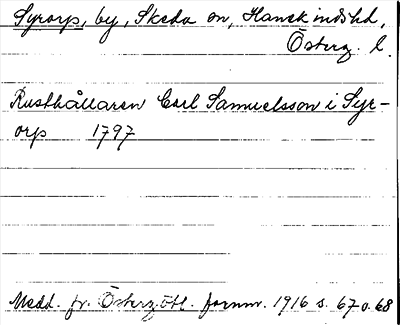 Syrorp, by, Skeda sn, Hanekindshd,
Österg. l.
Rusthållaren Carl Samuelsson i Syr-
orp 1797
Medd. fr. Östergötl. fornm. 1916 s. 67 o. 68